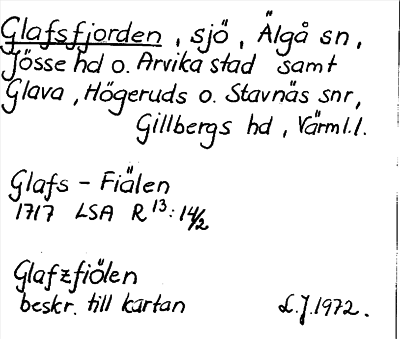 Glafsfjorden, sjö, Älgå sn,
Jösse hd o. Arvika stad samt
Glava, Högeruds o. Stavnäs snr,
Gillbergs hd, Värml.l.
Glafs - Fiälen
1717 LSA R 13:14/2
Glafzfiölen
beskr. till kartan L.J. 1972.